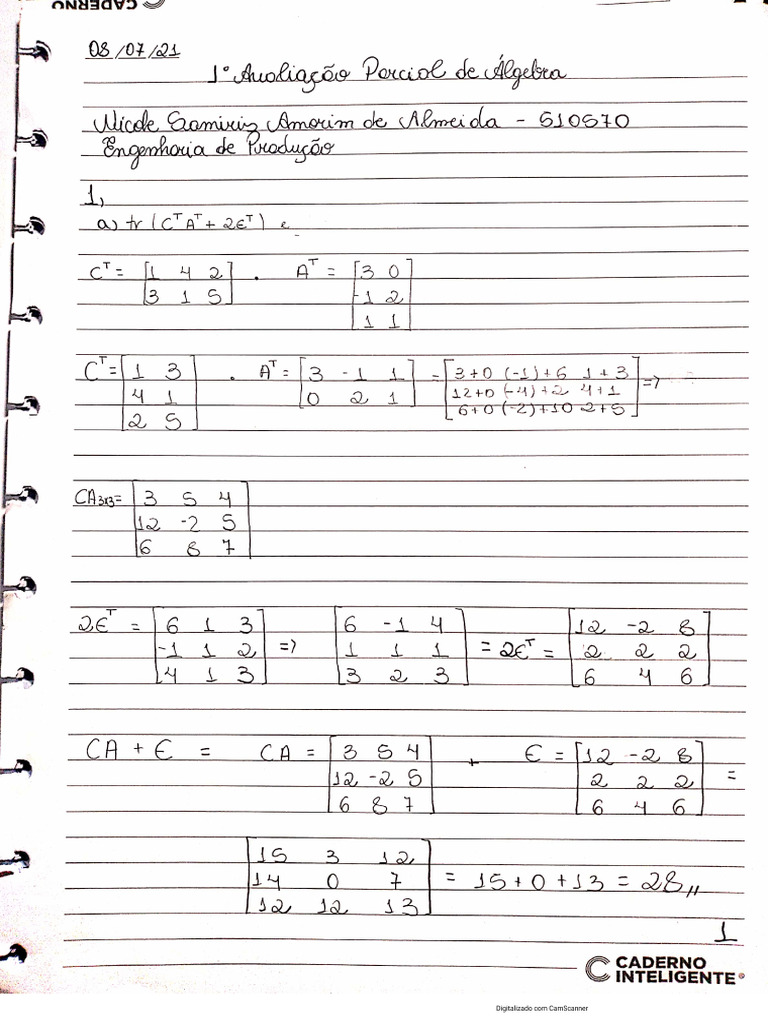 CADERNO
08/07/21
1° Avaliação Parcial de Álgebra
Nicole Samiriz Amorim de Almeida - 510570
Engenharia de Produção
1,
a) tr (CᵀAᵀ + 2Eᵀ)
Cᵀ = [1 4 2] . Aᵀ = [3 0]
[3 1 5] [-1 2]
[1 1]
Cᵀ = [1 3] . Aᵀ = [3 -1 1] = [3+0 (-1)+6 1+3] =>
[4 1] [0 2 1] [12+0 (-4)+2 4+1]
[2 5] [6+0 (-2)+10 2+5]
CA₃ₓ₃ = [3 5 4]
[12 -2 5]
[6 8 7]
2Eᵀ = [6 1 3] => [6 -1 4] = 2Eᵀ = [12 -2 8]
[-1 1 2] [1 1 1] [2 2 2]
[4 1 3] [3 2 3] [6 4 6]
CA + E = CA = [3 5 4] + E = [12 -2 8] =
[12 -2 5] [2 2 2]
[6 8 7] [6 4 6]
[15 3 12]
[14 0 7] = 15+0+13 = 28,,
[12 12 13]
1
CADERNO
INTELIGENTE®
Digitalizado com CamScanner